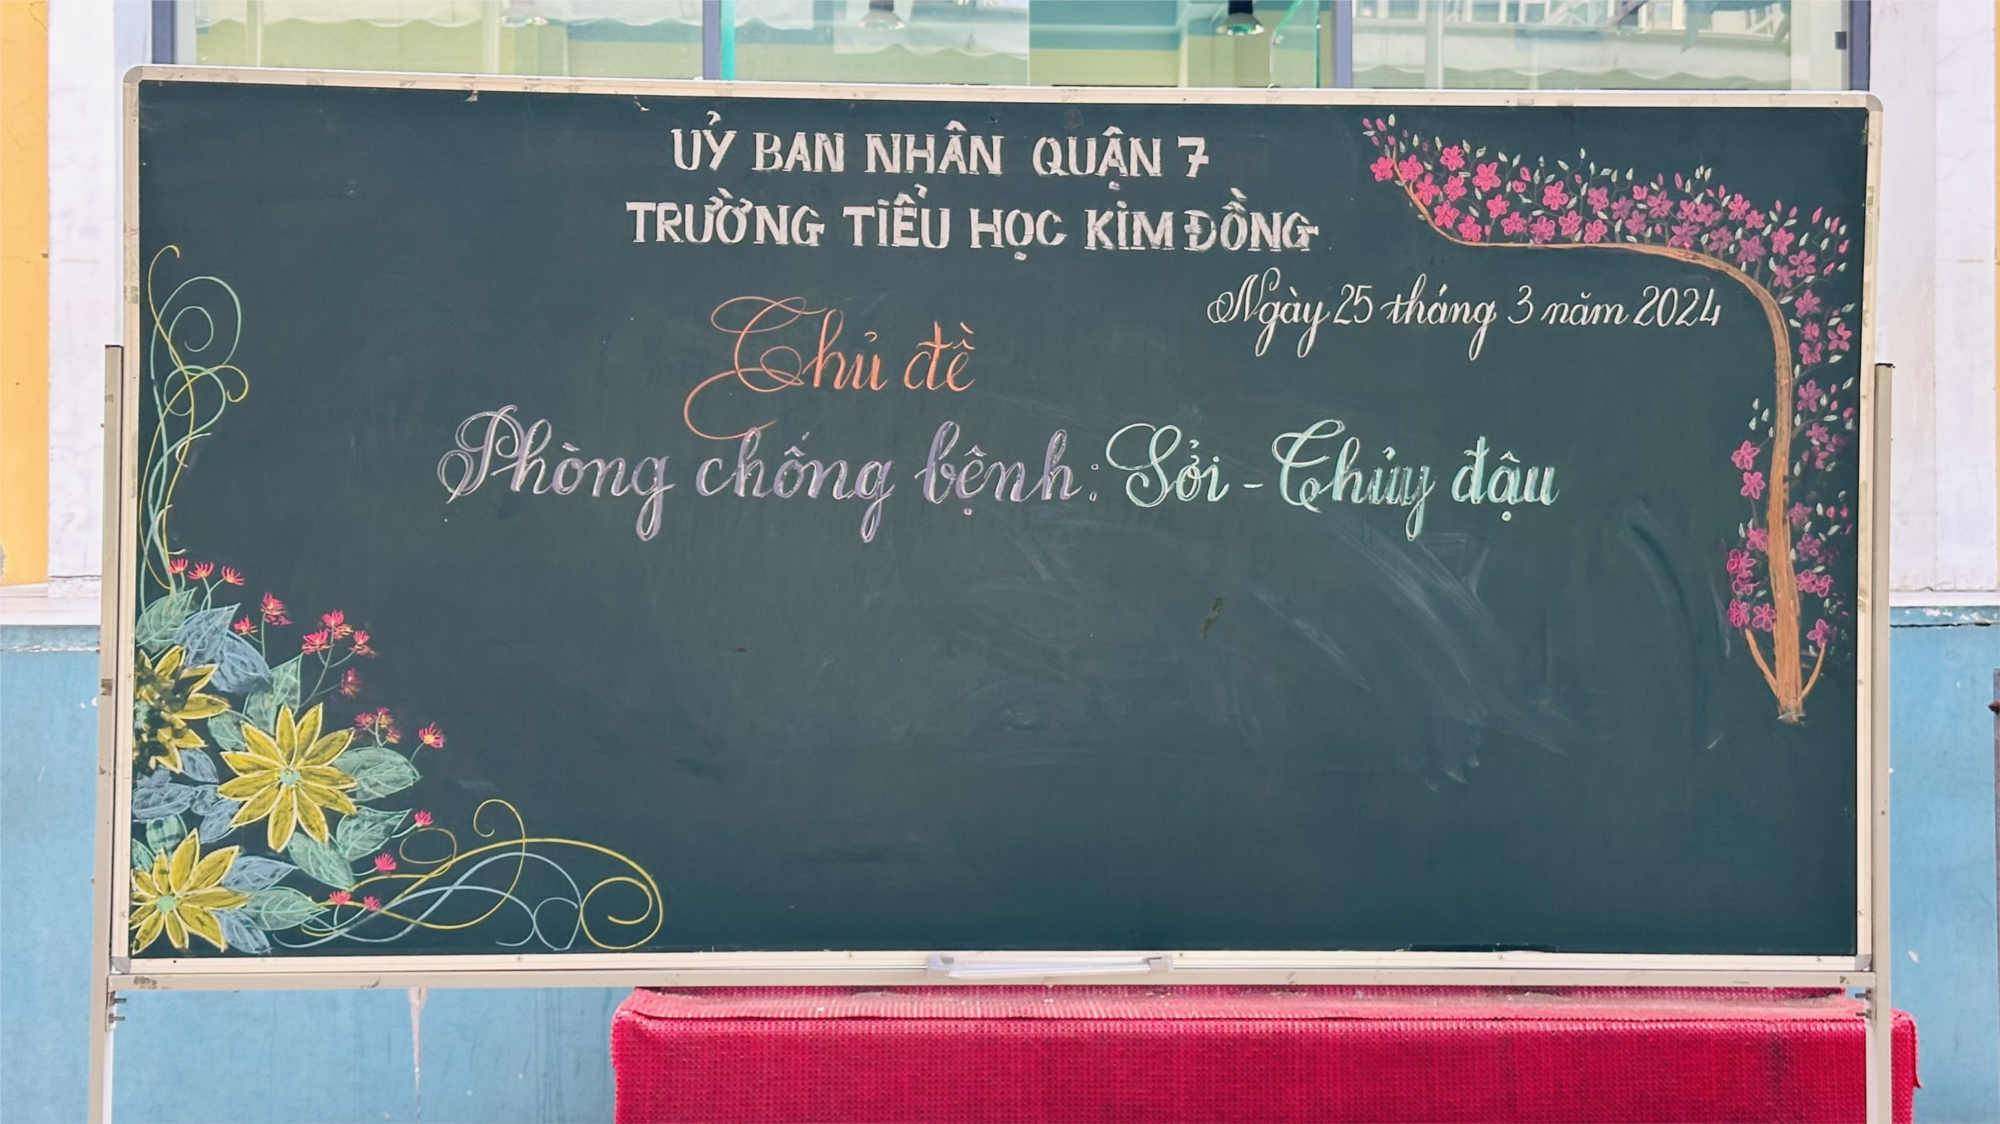 UỶ BAN NHÂN QUẬN 7
TRƯỜNG TIỂU HỌC KIM ĐỒNG
Ngày 25 tháng 3 năm 2024
Chủ đề
Phòng chống bệnh: Sởi - Thủy đậu